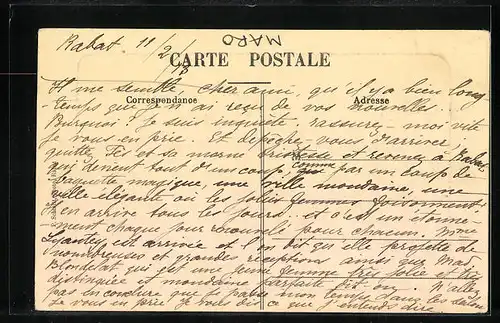 MARO
Rabat. 11/2/18
CARTE POSTALE
Correspondance
Adresse
Il me semble, cher ami, qu'il y a bien long
temps que je n'ai reçu de vos nouvelles.
Pourquoi? Je suis inquiète. rassurez-moi vite
je vous en prie. Et dépêchez vous d'arriver,
quittez Fès et sa morne tristesse et revenez à Rabat
qui devient tout d'un coup, comme par un coup de
baguette magique, une ville mondaine, une
ville élégante où les jolies femmes foisonnent.
Il en arrive tous les jours.. et c'est un étonne
ment chaque jour renouvelé pour chacun. Mme
Lyautey est arrivée et l'on dit qu'elle projette de
nombreuses et grandes réceptions ainsi que Mad.
Blondelat qui est une jeune femme très jolie et très
distinguée et mondaine parfaite dit-on. N'allez
pas en conclure que je passe mon temps dans les salons
je vous en prie. Je vous dis ce que j'entends dire.